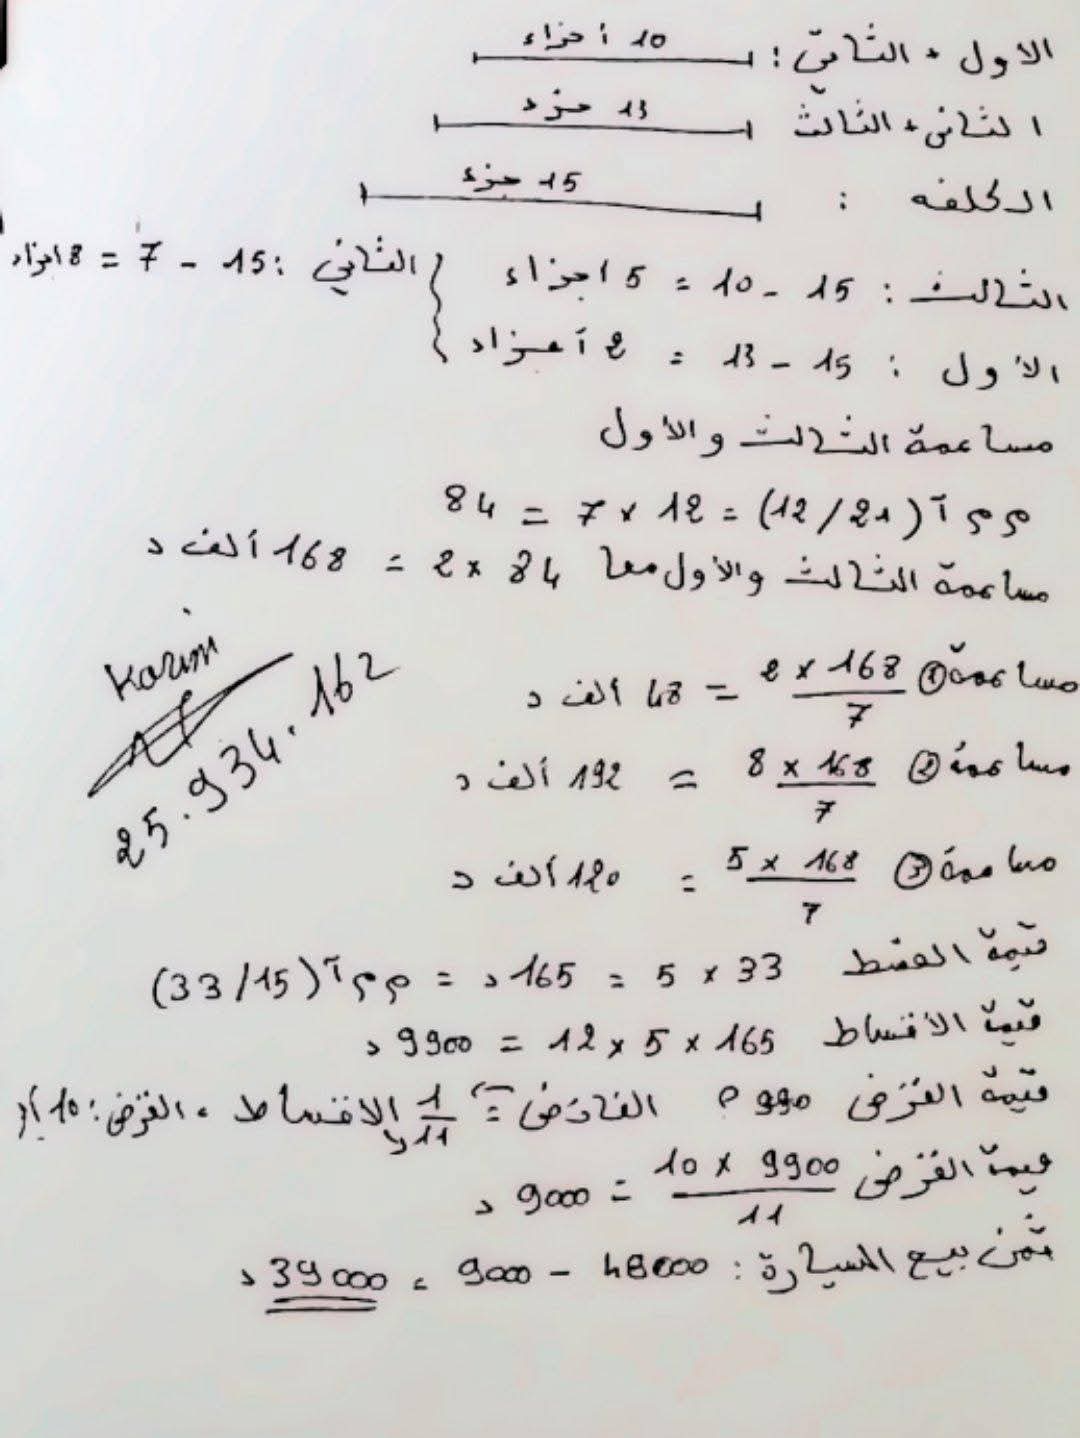 الاول + الثاني : 10 أجزاء
الثاني + الثالث 13 جزء
الكلفه : 15 جزء
الثالث : 15 - 10 = 5 اجزاء
الأول : 15 - 13 = 2 أجزاء
الثاني : 15 - 7 = 8 اجزاء
مساهمة الثالث والأول
م م أ (12/21) = 12 × 7 = 84
مساهمة الثالث والأول معا 84 × 2 = 168 ألف د
مساهمة ① 2 × 168 / 7 = 48 ألف د
مساهمة ② 8 × 168 / 7 = 192 ألف د
مساهمة ③ 5 × 168 / 7 = 120 ألف د
Karim
25.934.162
قيمة القسط 33 × 5 = 165 د = م م أ (33/15)
قيمة الأقساط 165 × 5 × 12 = 9900 د
قيمة القرض 990 ؟ الفائض = 1/11 الاقساط . القرض : 10
قيمة القرض 10 × 9900 / 11 = 9000 د
ثمن بيع السيارة : 48000 - 9000 = 39000 د